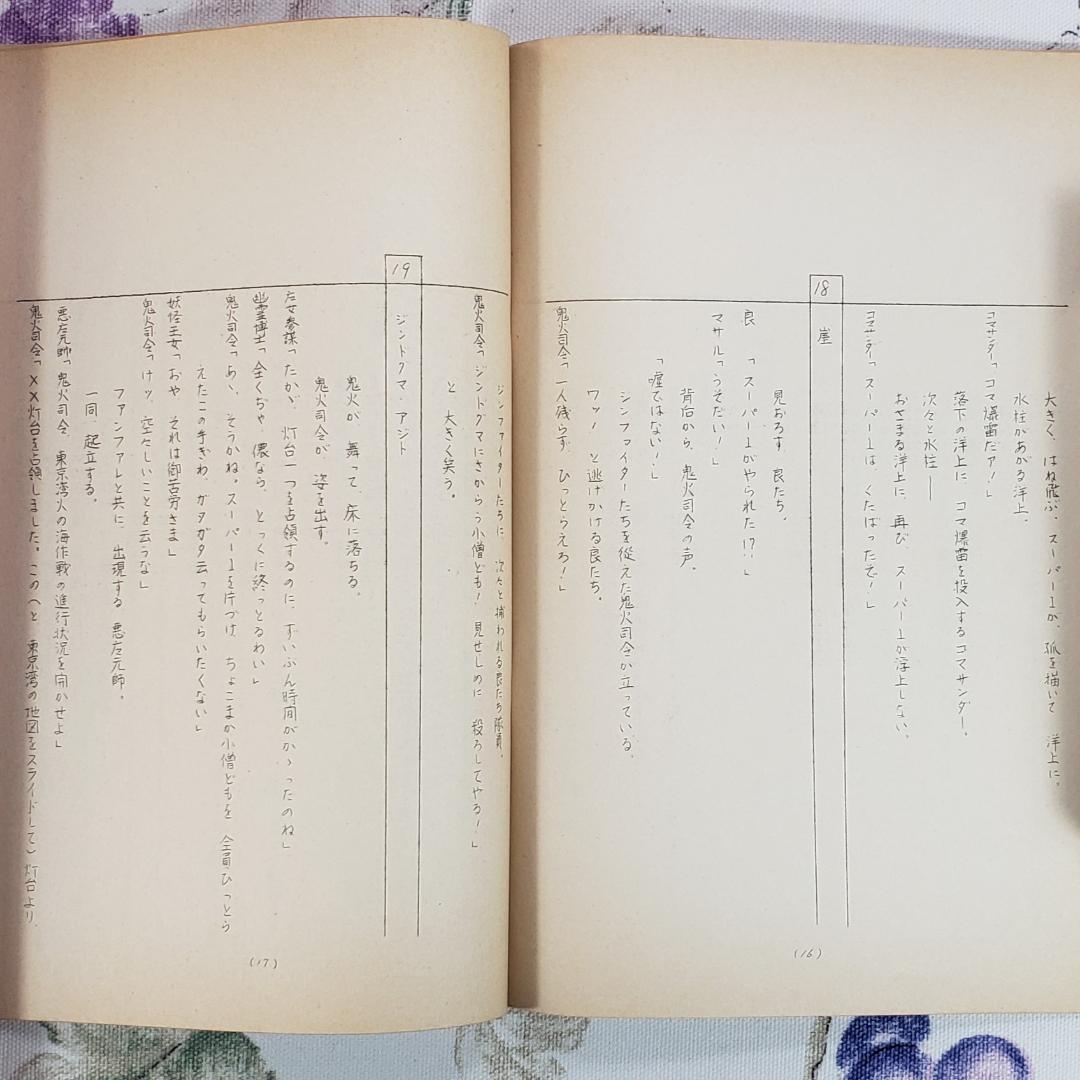 大きく、はね飛ぶ、スーパー1が、弧を描いて 洋上に。
水柱があがる洋上。
コマサンダー「コマ爆雷だァ！」
落下の洋上に コマ爆雷を投入するコマサンダー。
次々と水柱――
おさまる洋上に、再び、スーパー1が浮上しない。
コマサンダー「スーパー1は、くたばったぞ！」
18 崖
見おろす 良たち。
良 「スーパー1がやられた!?」
マサル「うそだい！」
背后から、鬼火司令の声。
「嘘ではない！」
シンファイターたちを従えた鬼火司令が立っている。
ワッ！ と逃げかける良たち。
鬼火司令「一人残らず、ひっとらえろ！」
(16)
ジンファイターたちに、次々と捕われる良たち隊員。
鬼火司令「ジンドグマにさからう小僧ども！ 見せしめに 殺ろしてやる！」
と 大きく笑う。
19 ジンドグマ・アジト
鬼火が 舞って、床に落ちる。
鬼火司令が、姿を出す。
妖女参謀「たかゞ、灯台一つを占領するのに、ずいぶん時間がかゝったのね」
幽霊博士「全くぢゃ 儂なら、とっくに終っとるわい」
鬼火司令「あゝ、そうかね。スーパー1を片づけ、ちょこまか小僧どもを 全員ひっとら
えたこの手ぎわ、ガタガタ云ってもらいたくない」
妖怪王女「おや それは御苦労さま」
鬼火司令「けッ、空々しいことを云うな」
ファンファレと共に、出現する 悪左元師。
一同、起立する。
悪左元帥「鬼火司令、東京湾火の海作戦の進行状況を聞かせよ」
鬼火司令「××灯台を占領しました。この(へと 東京湾の地図をスライドして) 灯台より、
(17)